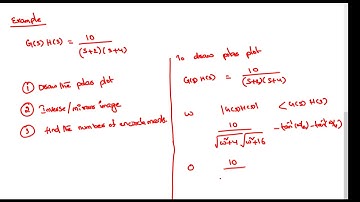 Example
G(s) H(s) = 10 / (s+2)(s+4)
① Draw the polar plot
② Inverse/mirror image
③ find the number of encirclements.
To draw polar plot
G(s) H(s) = 10 / (s+2)(s+4)
ω |G(s)H(s)| < G(s) H(s)
10 / √ω²+4 √ω²+16 - tan⁻¹(ω/2) - tan⁻¹(ω/4)
0 10